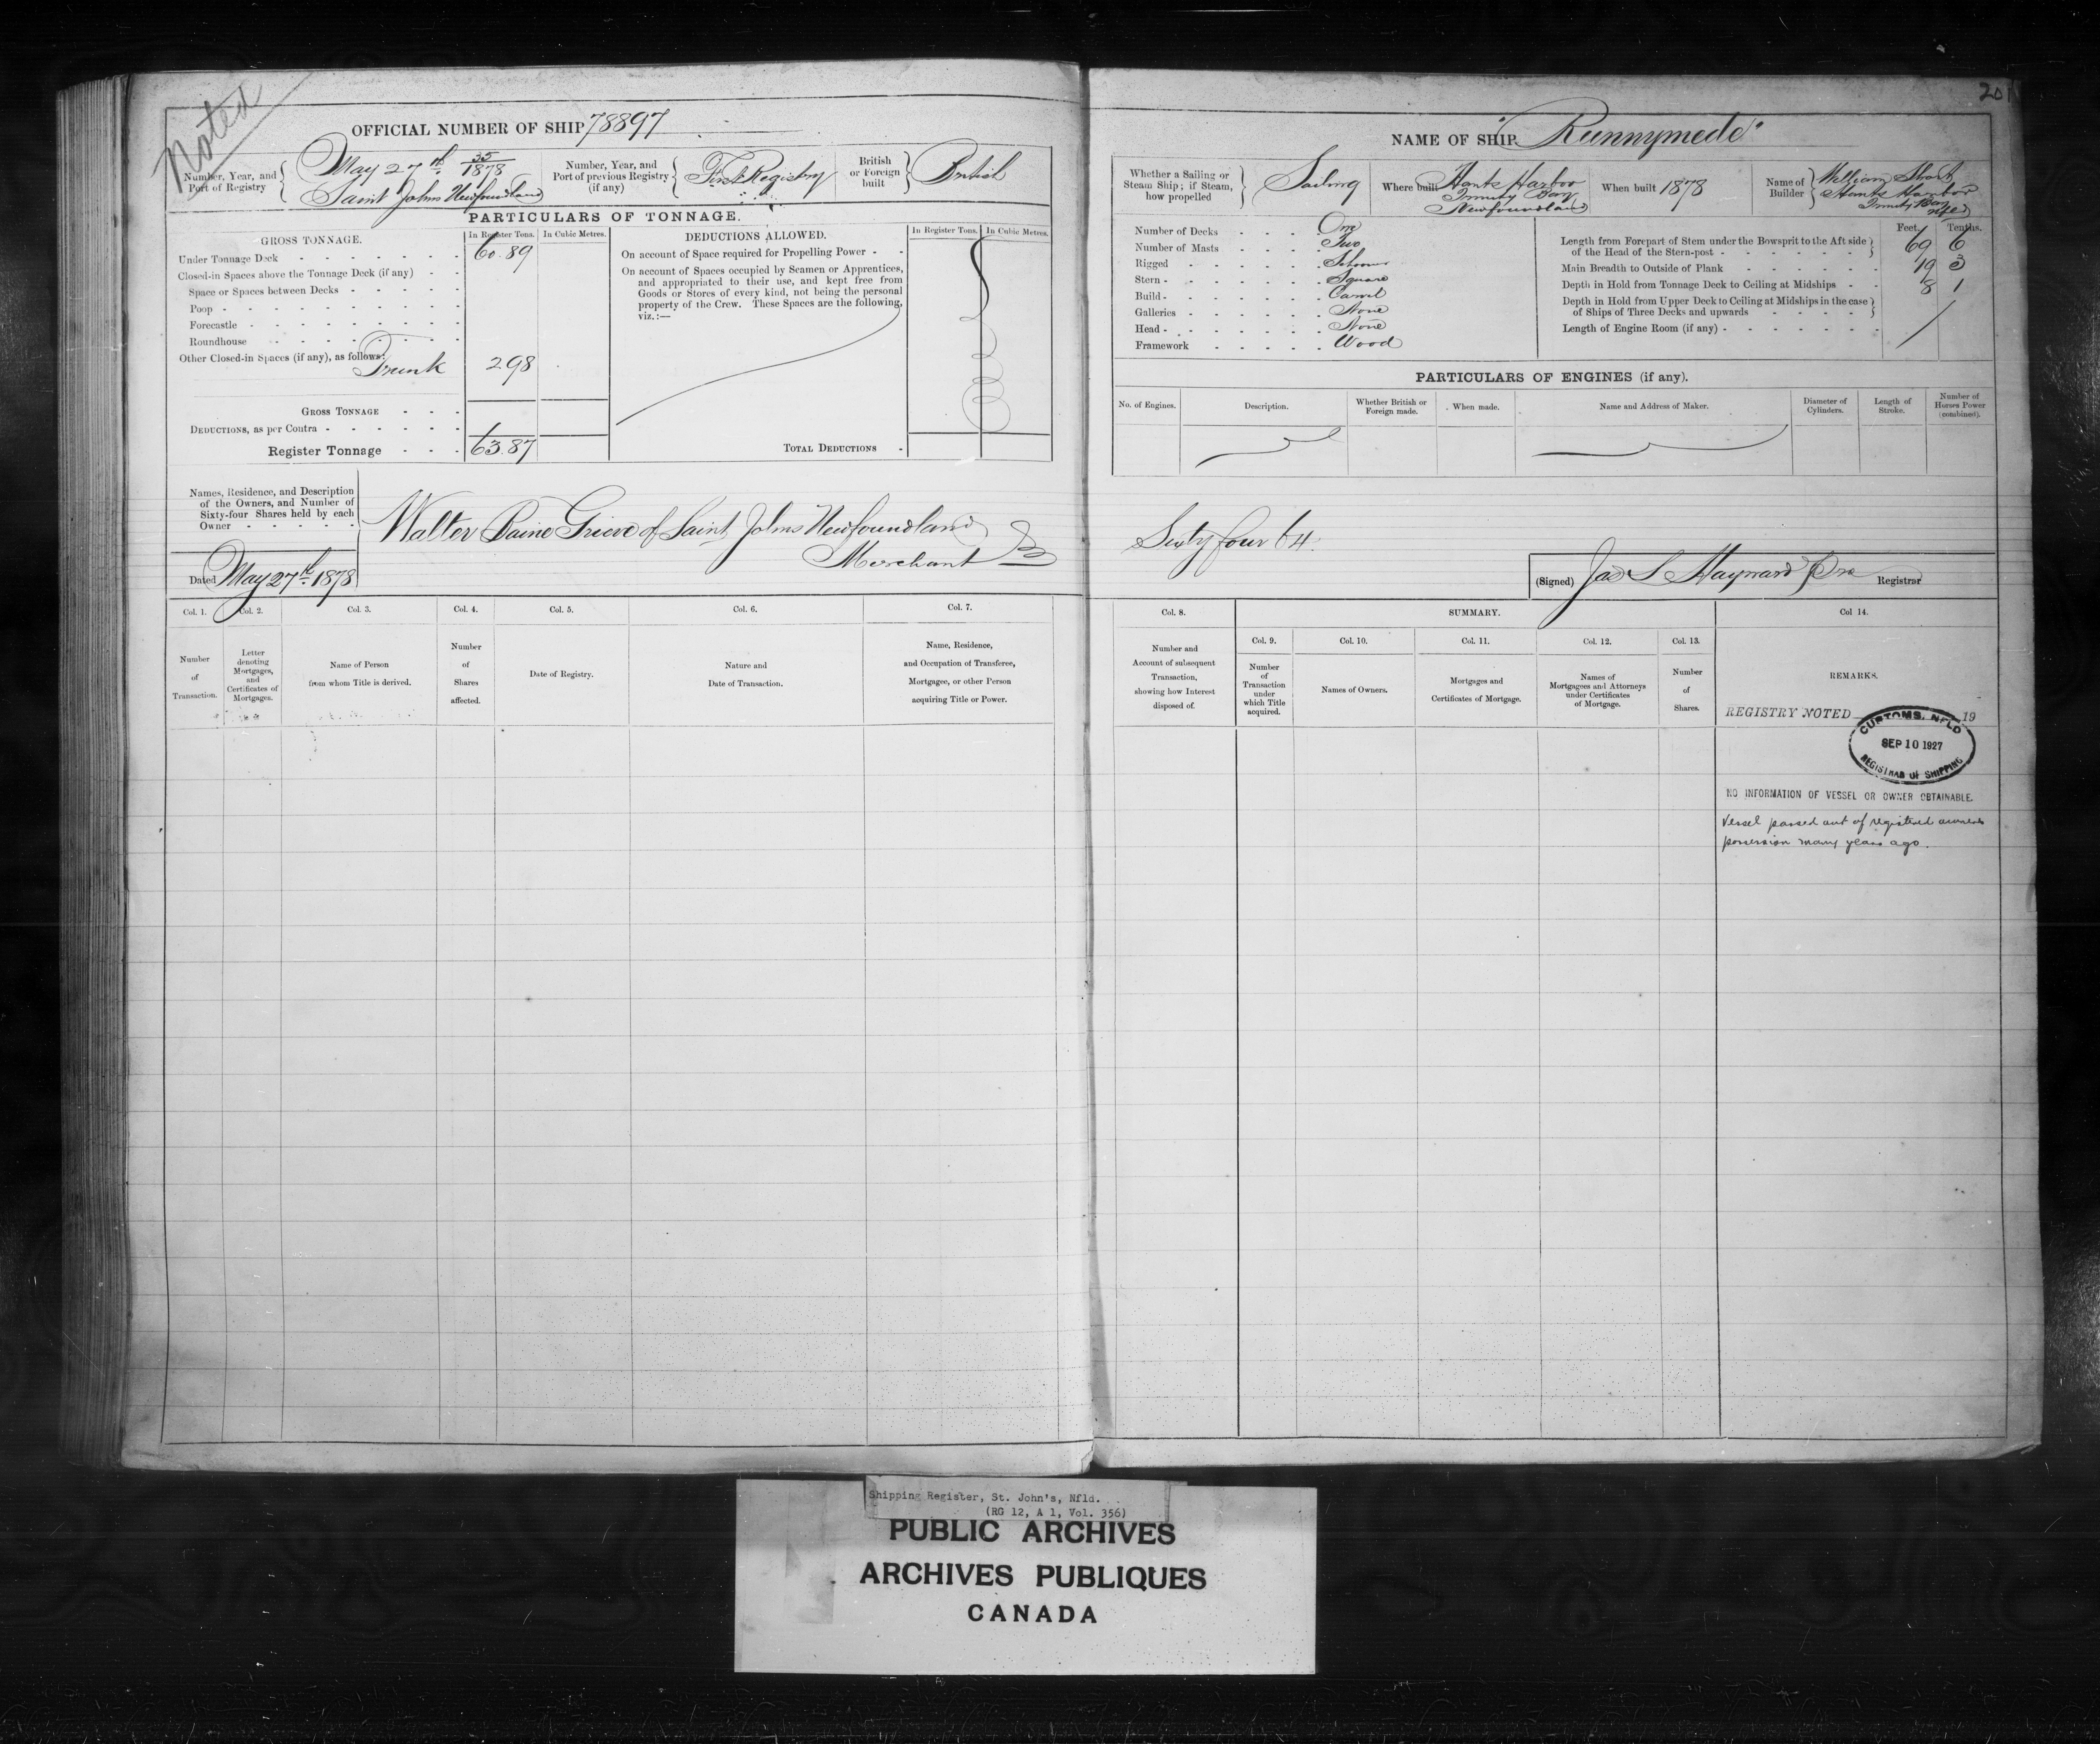 Noted
OFFICIAL NUMBER OF SHIP 78897
Number, Year, and Port of Registry { May 27th 35/1878 Saint Johns Newfoundland
Number, Year, and Port of previous Registry (if any) { First Registry
British or Foreign built } British
PARTICULARS OF TONNAGE.
GROSS TONNAGE. In Register Tons. In Cubic Metres.
Under Tonnage Deck 60.89
Closed-in Spaces above the Tonnage Deck (if any)
Space or Spaces between Decks
Poop
Forecastle
Roundhouse
Other Closed-in Spaces (if any), as follows:
Trunk 2.98
GROSS TONNAGE
DEDUCTIONS, as per Contra
Register Tonnage 63.87
DEDUCTIONS ALLOWED. In Register Tons. In Cubic Metres.
On account of Space required for Propelling Power
On account of Spaces occupied by Seamen or Apprentices,
and appropriated to their use, and kept free from
Goods or Stores of every kind, not being the personal
property of the Crew. These Spaces are the following,
viz.:—
TOTAL DEDUCTIONS
Names, Residence, and Description
of the Owners, and Number of
Sixty-four Shares held by each
Owner
Walter Baine Grieve of Saint Johns Newfoundland
Merchant
Dated May 27th 1878
Col. 1. Col. 2. Col. 3. Col. 4. Col. 5. Col. 6. Col. 7.
Number of Transaction.
Letter denoting Mortgages, and Certificates of Mortgages.
Name of Person from whom Title is derived.
Number of Shares affected.
Date of Registry.
Nature and Date of Transaction.
Name, Residence, and Occupation of Transferee, Mortgagee, or other Person acquiring Title or Power.
201
NAME OF SHIP "Runnymede"
Whether a Sailing or Steam Ship; if Steam, how propelled } Sailing
Where built Hants Harbor Trinity Bay Newfoundland
When built 1878
Name of Builder } William Short Hants Harbor Trinity Bay Nfld
Number of Decks One
Number of Masts Two
Rigged Schooner
Stern Square
Build Carvel
Galleries None
Head None
Framework Wood
Feet. Tenths.
Length from Forepart of Stem under the Bowsprit to the Aft side of the Head of the Stern-post 69 6
Main Breadth to Outside of Plank 19 3
Depth in Hold from Tonnage Deck to Ceiling at Midships 8 1
Depth in Hold from Upper Deck to Ceiling at Midships in the case of Ships of Three Decks and upwards
Length of Engine Room (if any)
PARTICULARS OF ENGINES (if any).
No. of Engines.
Description.
Whether British or Foreign made.
When made.
Name and Address of Maker.
Diameter of Cylinders.
Length of Stroke.
Number of Horses Power (combined).
Sixty four 64.
(Signed) Jas S Hayward Registrar
Col. 8. SUMMARY. Col 14.
Col. 9. Col. 10. Col. 11. Col. 12. Col. 13.
Number and Account of subsequent Transaction, showing how Interest disposed of.
Number of Transaction under which Title acquired.
Names of Owners.
Mortgages and Certificates of Mortgage.
Names of Mortgagees and Attorneys under Certificates of Mortgage.
Number of Shares.
REMARKS.
REGISTRY NOTED 19
CUSTOMS, NFLD
SEP 10 1927
REGISTRAR OF SHIPPING
NO INFORMATION OF VESSEL OR OWNER OBTAINABLE.
Vessel passed out of registered owners
possession many years ago.
Shipping Register, St. John's, Nfld.
(RG 12, A 1, Vol. 356)
PUBLIC ARCHIVES
ARCHIVES PUBLIQUES
CANADA